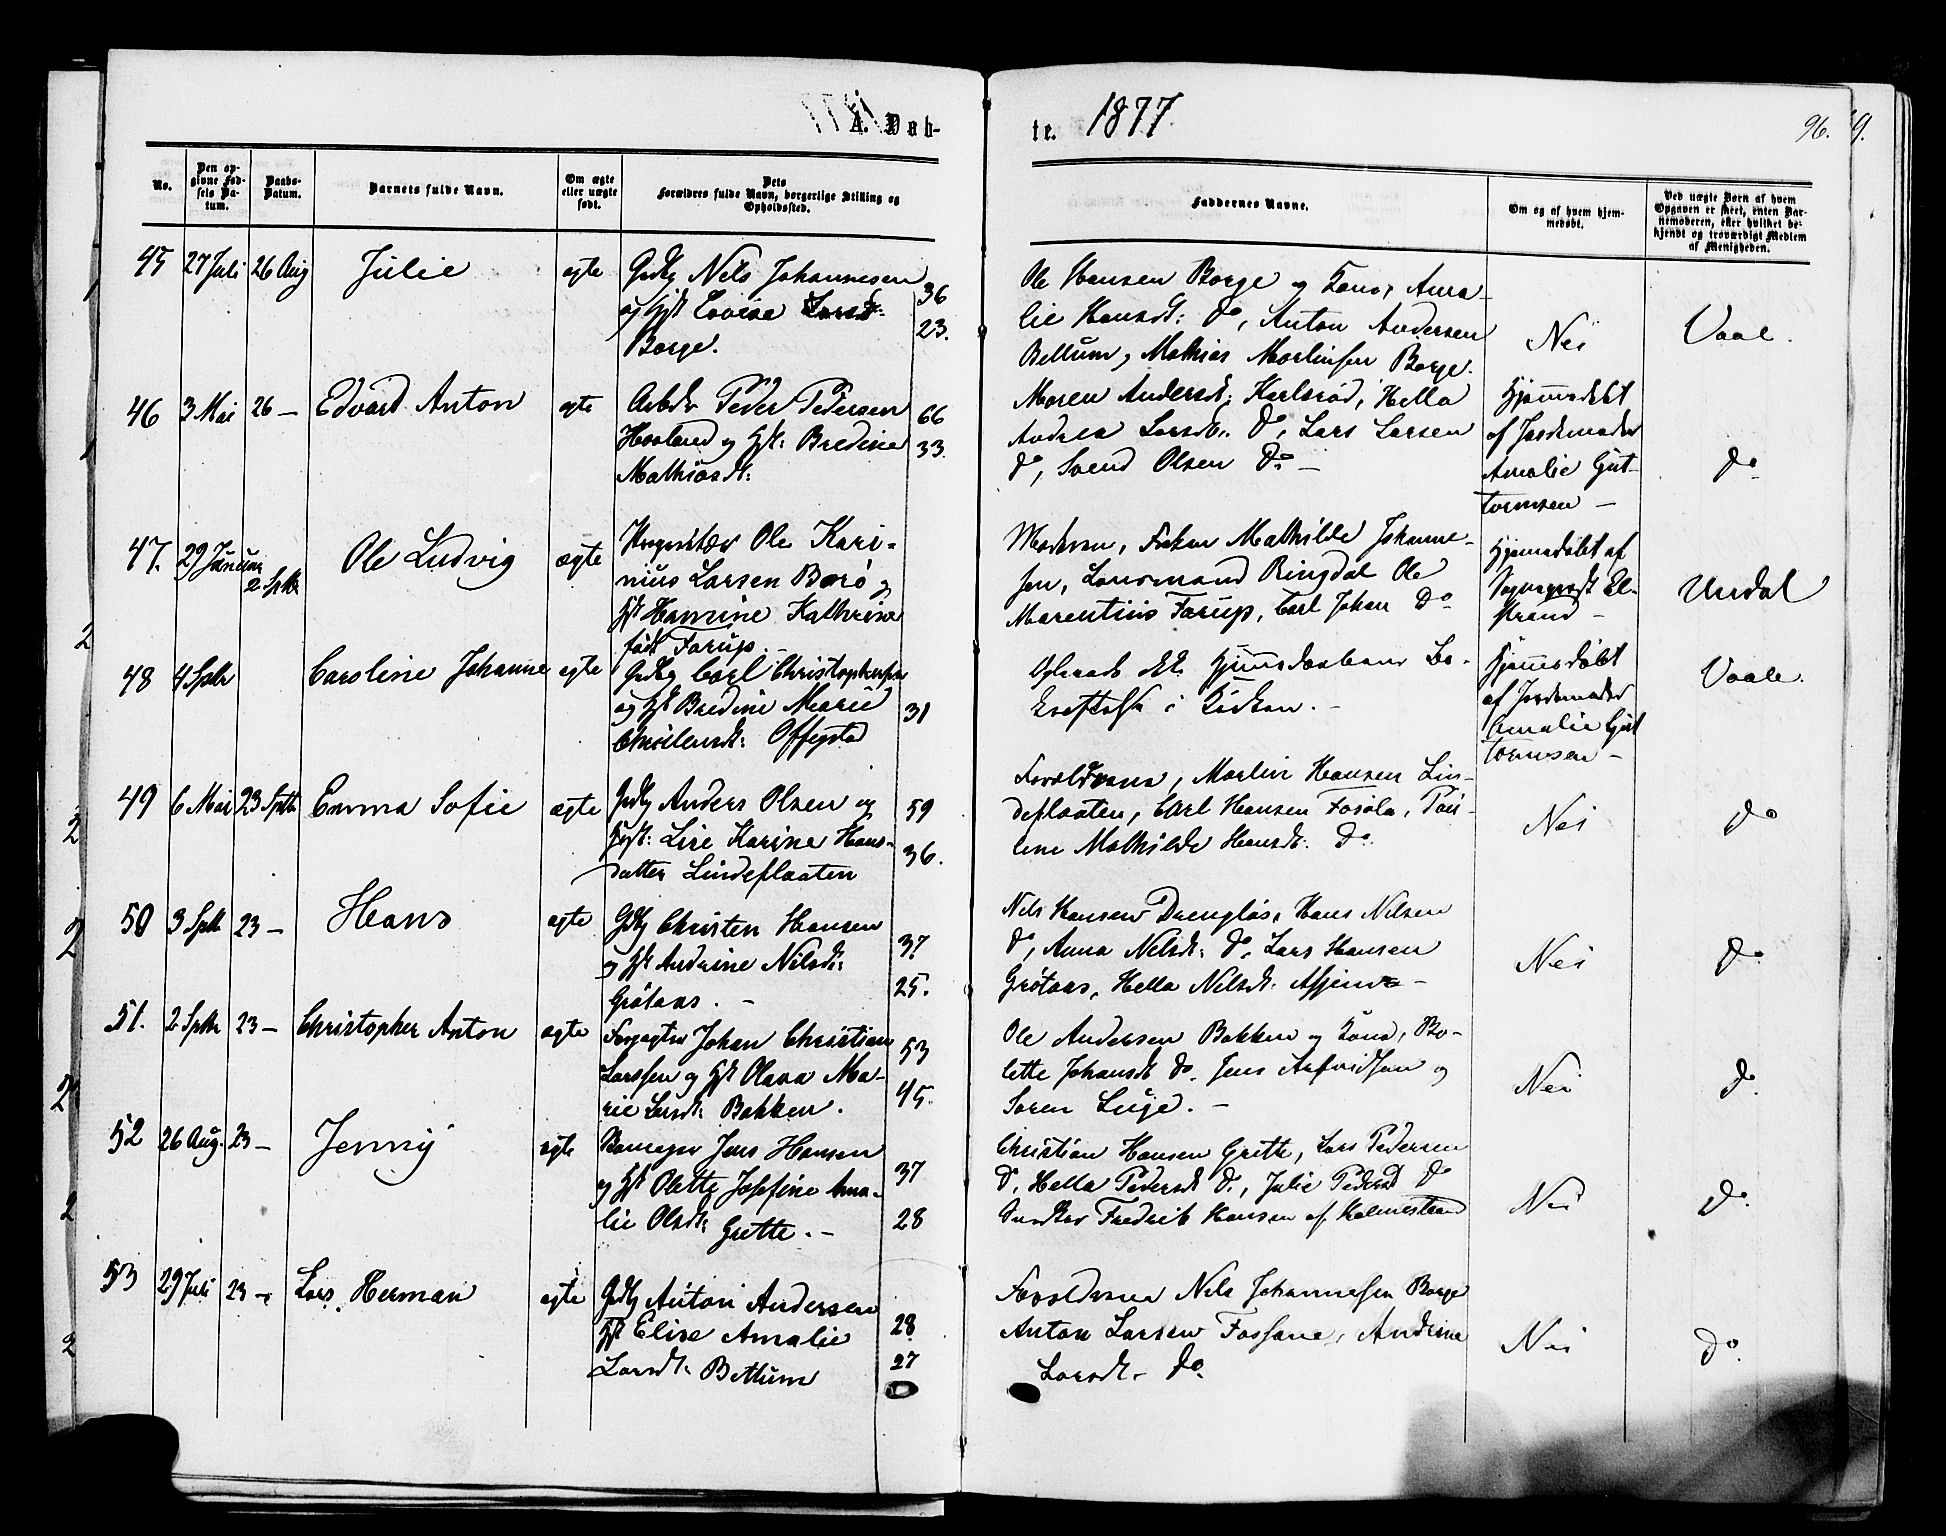 A. Døb-
te. 1877.
96.
9.
No.
Den op-
givne Fød-
sels Da-
tum.
Daabs-
Datum.
Barnets fulde Navn.
Om ægte
eller uægte
født.
Dets
Forældres fulde Navn, borgerlige Stilling og
Opholdssted.
Faddernes Navne.
Om og af hvem hjem-
medøbt.
Ved uægte Børn af hvem
Opgaven er skeet, enten Bar-
nemoderen, eller hvilket be-
kjendt og troværdigt Medlem
af Menigheden.
45 27 Juli 26 Aug Julie ægte Grdbg Nels Johannesen
og Hst Lovise Larsd:
Borge.
36
23.
Ole Hansen Borge og Kone, Ama-
lie Hansdt: Do, Anton Andersen
Bettum, Mathias Martinsen Borge.
Nei
Vaale.
46 3 Mai 26 — Edvard Anton ægte Arbdr Peder Pedersen
Haaland og Hst: Bredine
Mathiasdt:
66
33.
Maren Andersdt: Karlsrød, Hella
Andrea Larsdt: Do, Lars Larsen
Do, Svend Olsen Do —
Hjemmedøbt
af Jordemoder
Amalie Gut-
tormsen —
Do
47. 29 Januar 2 Sptbr Ole Ludvig ægte Ole Kari-
nius Larsen Borø og
Hst Hamine Kathrine
født Farup. —
Moderen, Frøken Mathilde Johanne-
sen, Lensmand Ringdal Ole
Marentius Farup, Carl Johan Do
Hjemmedøbt af
Sogneprest El-
strand —
Undal
48 4 Sptbr Caroline Johanne ægte Grdbg Carl Christophersen
og Hst Bredine Marie
Christiansdt: Offigstad
31
Hjemmedaabens Be-
kræftelse i Kirken. —
Hjemmedøbt
af Jordemoder
Amalie Gut
tormsen —
Vaale.
49 6 Mai 23 Sptbr Emma Sofie ægte Grdbg Anders Olsen og
Hst: Lise Karine Hans-
datter Lindeflaaten
59
36.
Forældrene, Martin Hansen Lin-
deflaaten, Carl Hansen Do, Pau-
line Mathilde Hansdt: Do.
Nei
Do
50 3 Sptb 23 — Hans ægte Grdbg Christen Hansen
og Hst Andrine Nilsdt:
Grötaas. —
37
25.
Nils Hansen Hans Nilsen
Do, Anna Nelsdt: Do, Lars Hansen
Grötaas, Hella Nilsdt.
Nei
Do
51. 2 Sptbr 23 — Christopher Anton ægte Forpagter Johan Christian
Larssen og Hst Olava Ma-
rie Larsdt: Bakken.
53
45.
Ole Andersen Bakken og Kone, Bo-
lette Johansdt Do. Jens Arfvidsen og
Søren Luge. —
Nei
Do.
52 26 Aug. 23 — Jenny ægte Skomager Jens Hansen
og Hst Olette Josefine Ama-
lie Olsdt: Grette. —
37
28
Christian Hansen Grette, Lars Pedersen
Do, Hella Pedersdt Do, Julie Pedersd Do
Snedker Fredrik Hansen af Holmestrand
Nei
Do.
53 29 Juli 23 — Lars Herman ægte Grdbg Anton Andersen
Hst Elise Amalie
Larsdt: Bettum
28
27
Forældrene Nels Johannesen Borge
Anton Larsen Fossane, Andrine
Larsdt — Do.
Nei
Do.